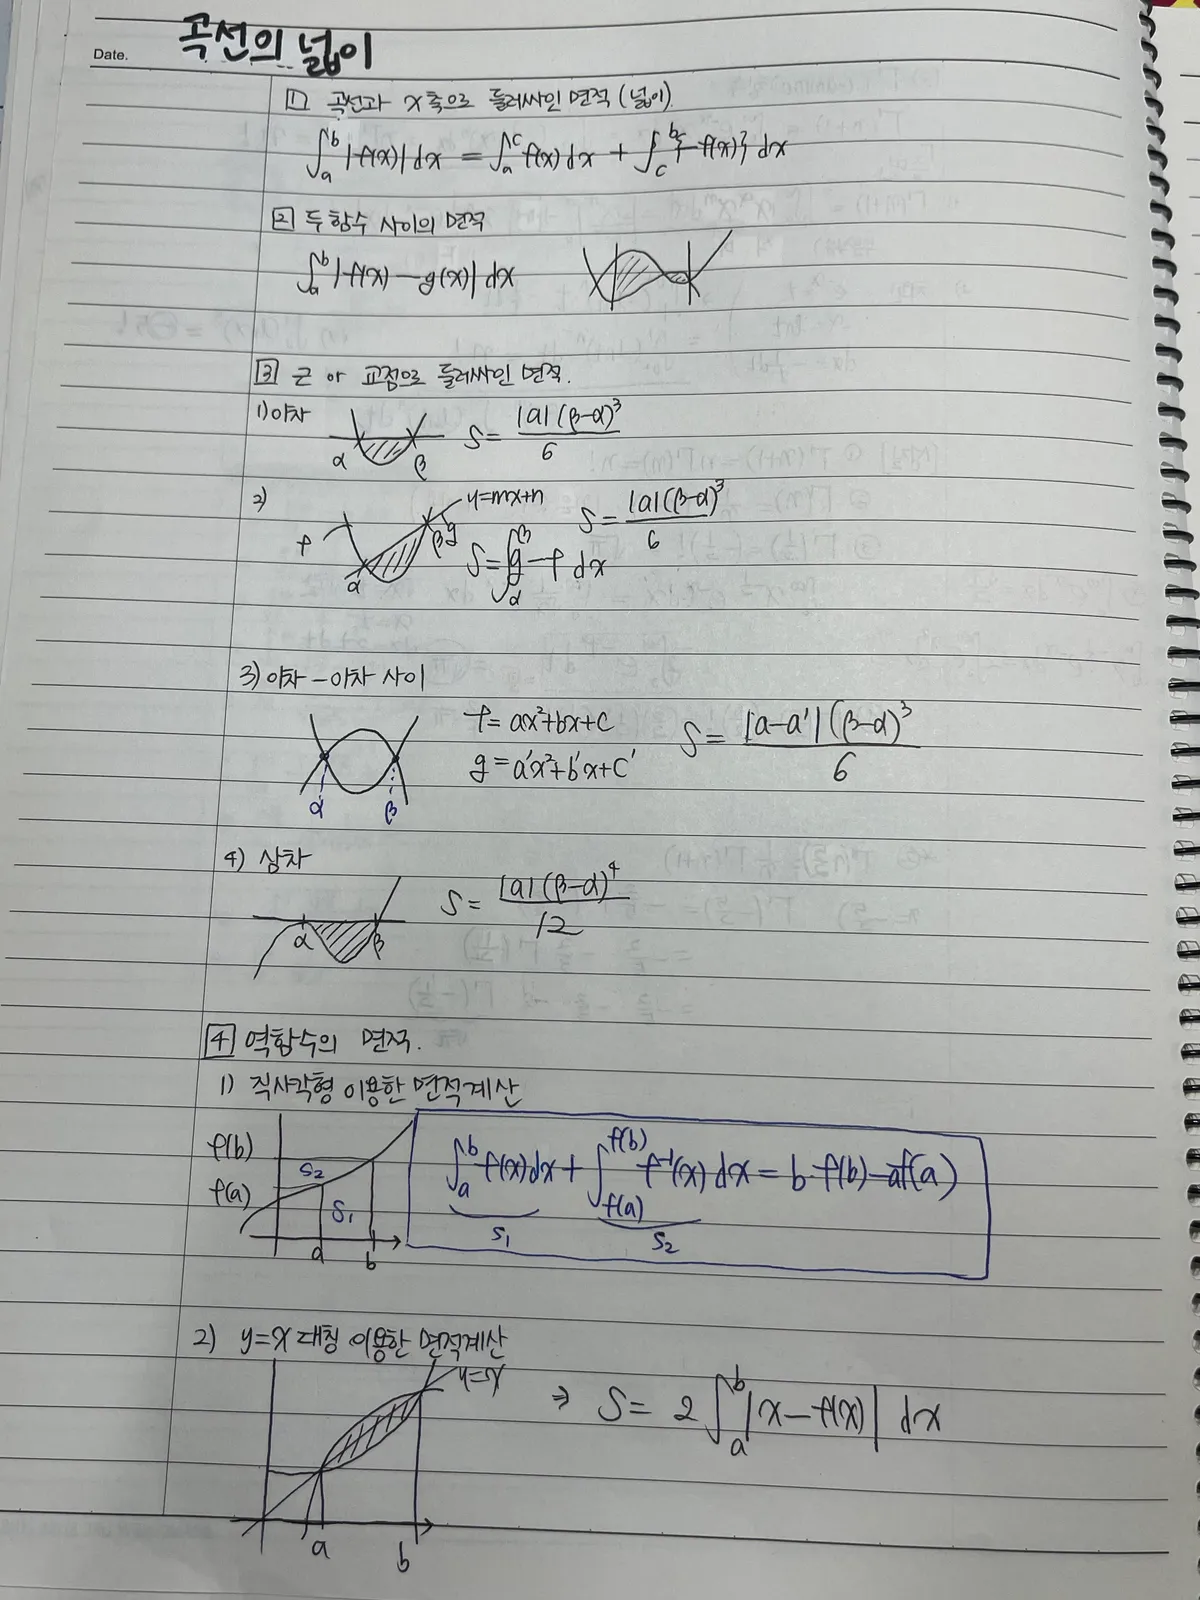 Date. 곡선의 넓이
1 곡선과 x축으로 둘러싸인 면적 (넓이).
∫_a^b |f(x)| dx = ∫_a^c f(x) dx + ∫_c^b {-f(x)} dx
2 두함수 사이의 면적
∫_a^b |f(x) - g(x)| dx
3 근 or 교점으로 둘러싸인 면적.
1) 이차
α β S = |a|(β-α)³/6
2) f α β g y=mx+n S = |a|(β-α)³/6
S = ∫_α^β g - f dx
3) 이차 - 이차 사이
f = ax²+bx+c
g = a'x²+b'x+c' S = |a-a'|(β-α)³/6
α β
4) 삼차
α β S = |a|(β-α)⁴/12
4 역함수의 면적.
1) 직사각형 이용한 면적계산
f(b) f(a) S₂ S₁ a b
∫_a^b f(x)dx + ∫_f(a)^f(b) f⁻¹(x) dx = b·f(b) - af(a)
S₁ S₂
2) y=x 대칭 이용한 면적계산
y=x
⇒ S = 2∫_a^b |x - f(x)| dx
a b